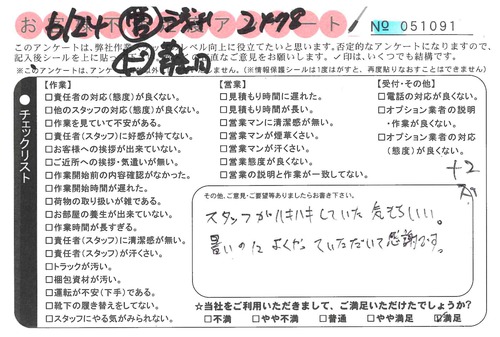 お客様不満足アンケート
6/24
No 051091
このアンケートは、弊社作業
レベル向上に役立てたいと思います。否定的なアンケートになりますので、
記入後シールを上に貼って
直なご意見をお願いします。✓印は、いくつでも結構です。
※このアンケートは、
しません。(※情報保護シールは1度はがすと、再度貼りなおすことはできません)
チェックリスト
【作業】
□責任者の対応(態度)が良くない。
□他のスタッフの対応(態度)が良くない。
□作業を見ていて不安がある。
□責任者(スタッフ)に好感が持てない。
□お客様への挨拶が出来ていない。
□ご近所への挨拶・気遣いが無い。
□作業開始前の内容確認がなかった。
□作業開始時間が遅れた。
□荷物の取り扱いが雑である。
□お部屋の養生が出来ていない。
□作業時間が長すぎる。
□責任者(スタッフ)に清潔感が無い。
□責任者(スタッフ)が汗くさい。
□トラックが汚い。
□梱包資材が汚い。
□運転が不安(下手)である。
□靴下の履き替えをしてない。
□スタッフにやる気がみられない。
【営業】
□見積もり時間に遅れた。
□見積もり時間が長い。
□営業マンに清潔感が無い。
□営業マンが煙草くさい。
□営業マンが汗くさい。
□営業態度が良くない。
□営業の説明と作業が一致してない。
【受付・その他】
□電話の対応が良くない。
□オプション業者の説明
・作業が良くない。
□オプション業者の対応
(態度)が良くない。
+2
その他、ご意見・ご要望等ありましたらお書き下さい。
スタッフがハキハキしていた 気もちいい。
暑いのに よくやっていただいて感謝です。
☆当社をご利用いただきまして、ご満足いただけたでしょうか?
□不満 □やや不満 □普通 □やや満足 ☑満足